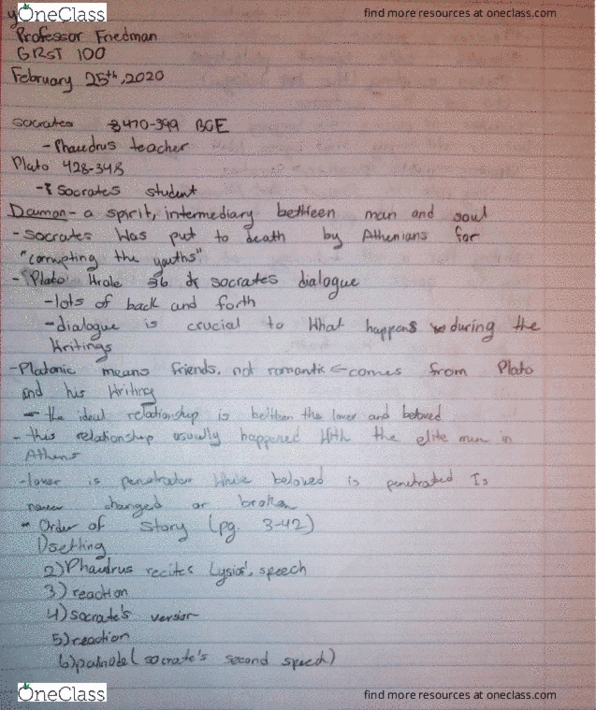 OneClass find more resources at oneclass.com
Professor Friedman
GRST 100
February 25th, 2020
Socrates 470-399 BCE
- Phaedrus teacher
Plato 428-348
- Socrates student
Daimon - a spirit, intermediary between man and soul
- Socrates was put to death by Athenians for
"corrupting the youths"
- Plato wrote 36 socrates dialogue
- lots of back and forth
- dialogue is crucial to what happens during the
writings
- Platonic means friends, not romantic ← comes from Plato
and his writing
- the ideal relationship is between the lover and beloved
- this relationship usually happened with the elite men in
Athens
- lover is penetrator while beloved is penetrated Is
never changed or broken
- Order of story (pg. 3-42)
1) setting
2) Phaedrus recites Lysias' speech
3) reaction
4) socrate's version
5) reaction
6) palinode (socrate's second speech)
OneClass find more resources at oneclass.com